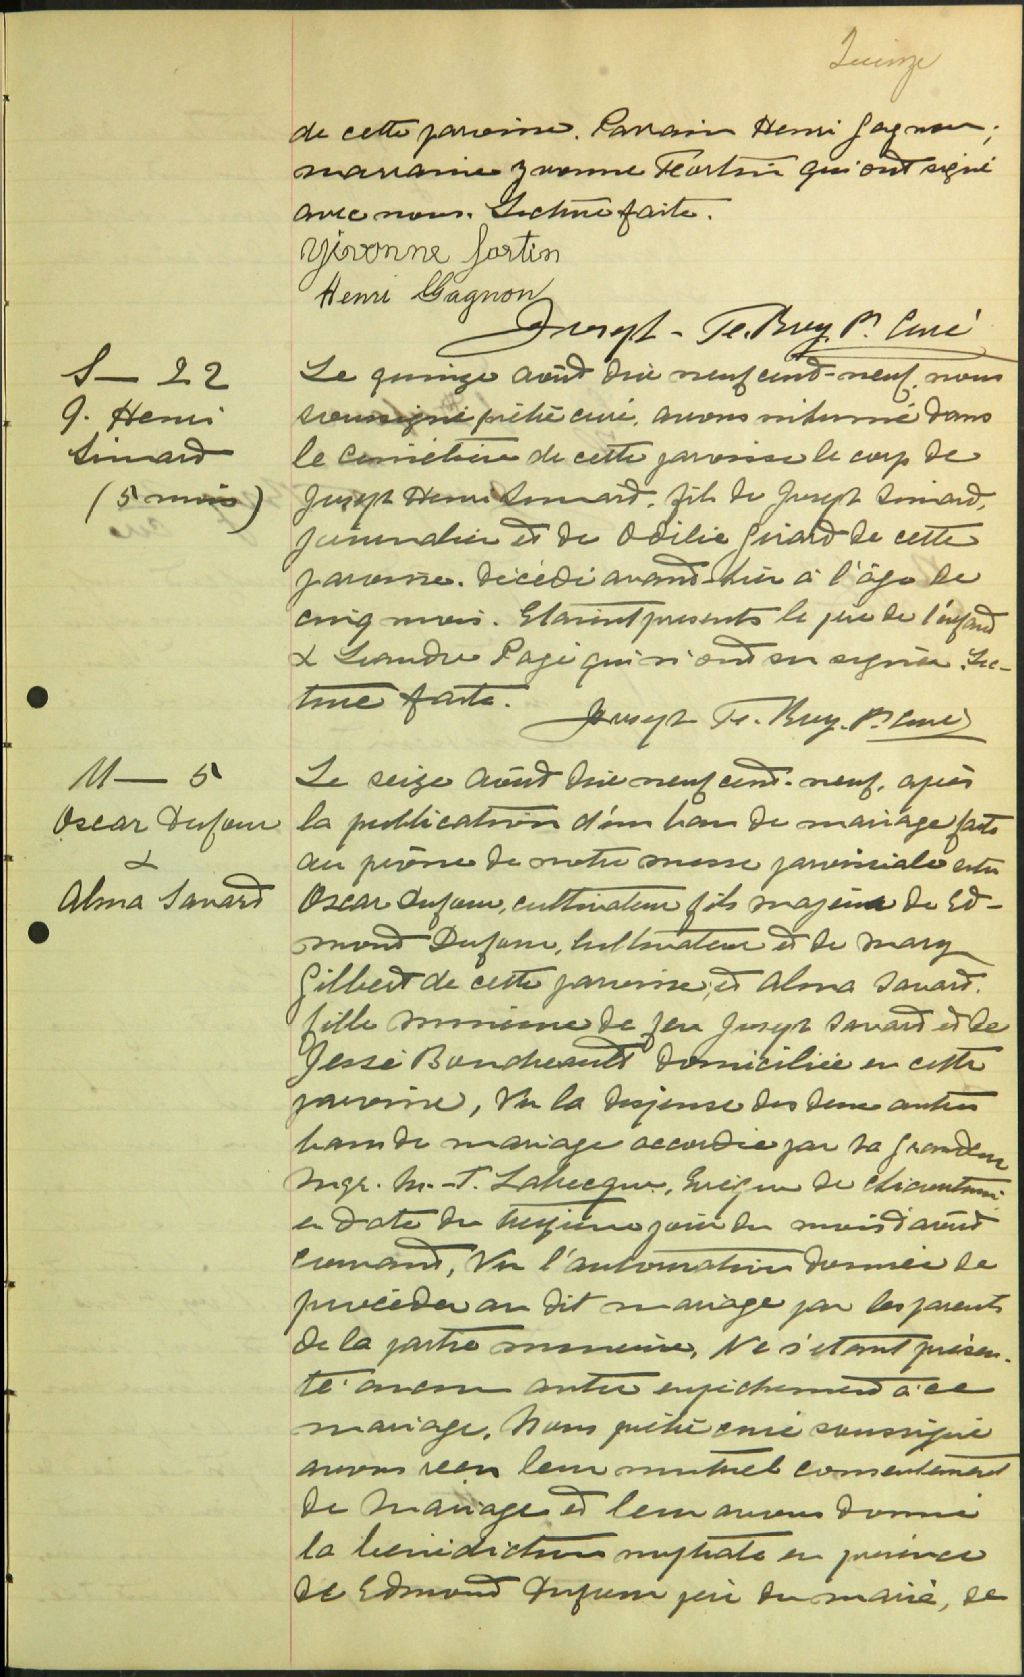 Quinze
de cette paroisse. Parrain Henri Gagnon;
marraine Yvonne Fortin qui ont signé
avec nous. Lecture faite.
Yivonne Fortin
Henri Gagnon
Joseph - Ptre Curé
S — 22
J. Henri
Simard
(5 mois)
Le quinze août dix neuf cent-neuf, nous
soussigné prêtre curé, avons inhumé dans
le cimétière de cette paroisse le corp de
Joseph Henri Simard, fils de Joseph Simard,
journalier et de Odilie Girard de cette
paroisse. décédé avant-hier à l'âge de
cinq mois. Etaient presents le père de l'enfant
& Léandre Pagé qui n'ont su signer. Lec-
ture faite.
Joseph Ptre curé
M — 5
Oscar Dufour
&
Alma Savard
Le seize août dix neuf cent-neuf, après
la publication d'un ban de mariage faite
au prône de notre messe paroissiale entre
Oscar Dufour, cultivateur fils majeur de Ed-
mond Dufour, cultivateur et de Mary
Gilbert de cette paroisse; et Alma Savard.
fille mineure de feu Joseph Savard et de
Jessé Boudreault domiciliée en cette
paroisse, Vu la dispense des deux autres
bans de mariage accordée par sa Grandeur
Mgr. M.-T. Labrecque, Evêque de Chicoutimi
en date du treizième jour du mois d'août
courant, Vu l'autorisation donnée de
procéder au dit mariage par les parents
de la partie mineure, Ne s'étant présen-
té aucun autre empêchement à ce
mariage, Nous prêtre curé soussigné
avons reçu leur mutuel consentement
de Mariage et leur avons donné
la bénédiction nuptiale en présence
de Edmond Dufour père du marié, de